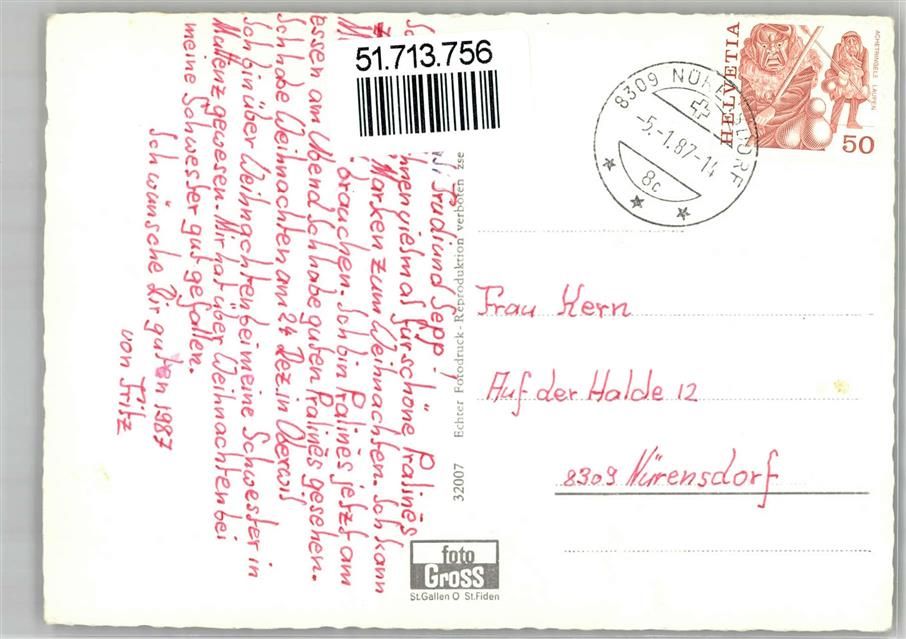 51.713.756
Trudi und Sepp!
für schöne Pralinés
Marken zum Weihnachten. Ich kann
brauchen. Ich bin Pralinés jetzt am
essen am Abend Ich habe guten Pralinés gesehen.
Ich habe Weihnachten am 24 Dez. in Oberwil
Ich bin über Weihnachten bei meine Schwester in
gewesen. Mir hat über Weihnachten bei
meine Schwester gut gefallen.
Ich wünsche Dir guten 1987
von Fritz
32007 Echter Fotodruck - Reproduktion verboten zse
foto
Gross
St.Gallen O St.Fiden
8309 NÜRENSDORF
-5.-1.87-14
8c
HELVETIA
ACHETRINGELE LAUPEN
50
Frau Kern
Auf der Halde 12
8309 Nürensdorf